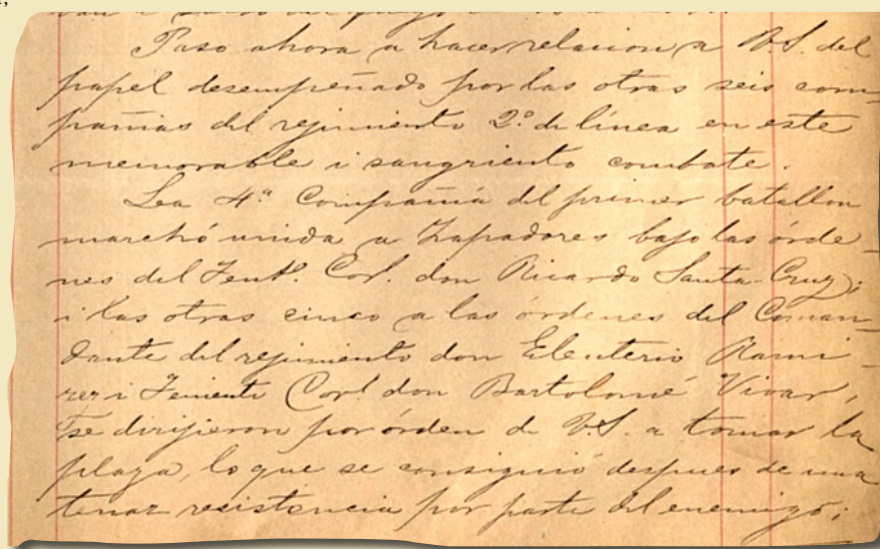 Paso ahora a hacer relacion a V.S. del
papel desempeñado por las otras seis com-
pañias del rejimiento 2º de línea en este
memorable i sangriento combate.
La 4ª Compañía del primer batallon
marchó unida a Zapadores bajo las órde-
nes del Tent. Corl. don Ricardo Santa-Cruz;
i las otras cinco a las órdenes del Coman-
dante del rejimiento don Eleuterio Rami-
rez i Teniente Corl don Bartolomé Vivar,
se dirijieron por órden de V.S. a tomar la
plaza, lo que se consiguió despues de una
tenaz resistencia por parte del enemigo;